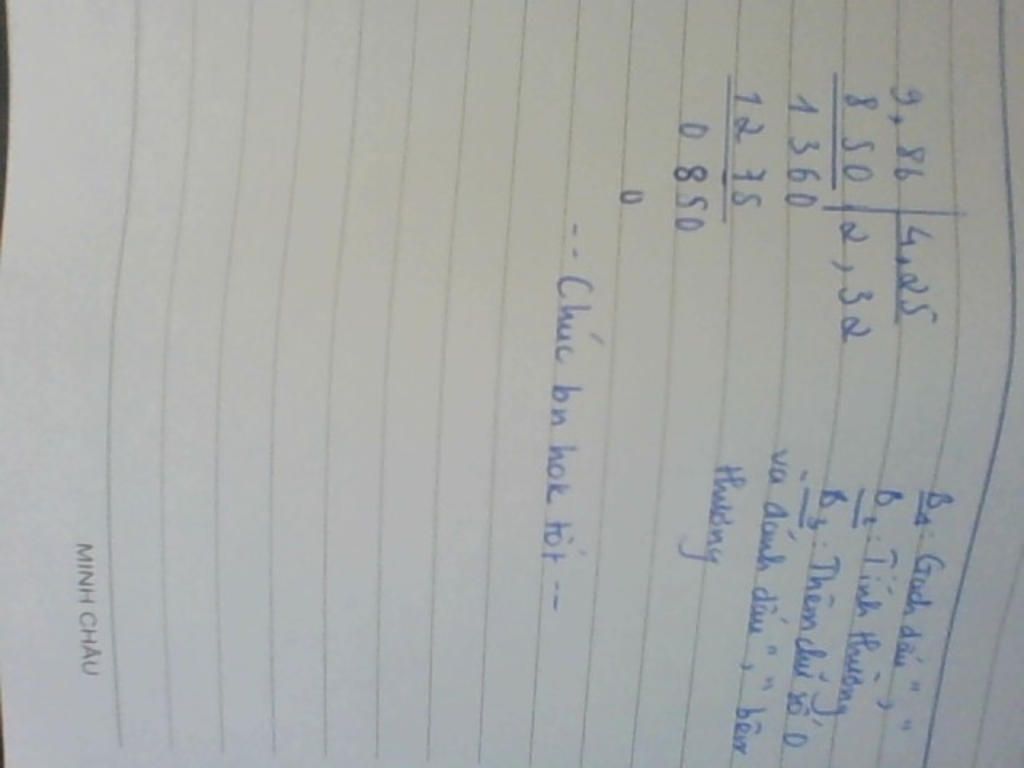 9,86 | 4,25
8 50 | 2,32
1 360
1 2 75
0 850
0
B1: Gạch dấu " , "
B2: Tính thương
B3: Thêm chữ số 0
và đánh dấu " , " bên
thương
-- Chúc bn hok tốt --
MINH CHÂU